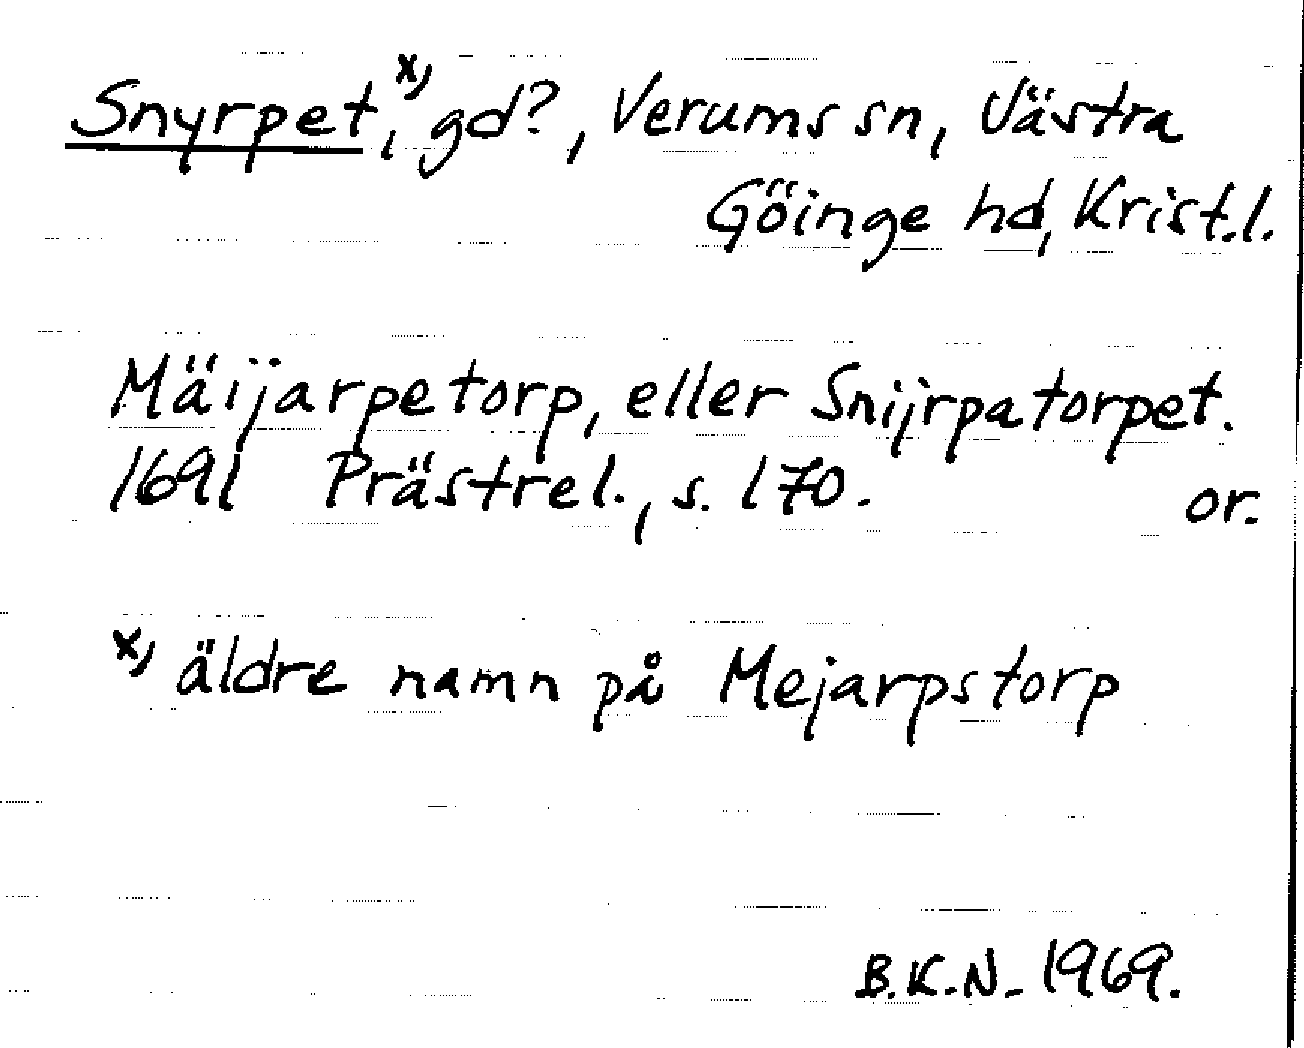 Snyrpet,x) gd?, Verums sn, Västra
Göinge hd, Krist.l.
Mäijarpetorp, eller Snijrpatorpet.
1691 Prästrel., s. 170. or.
x) äldre namn på Mejarpstorp
B.K.N. 1969.